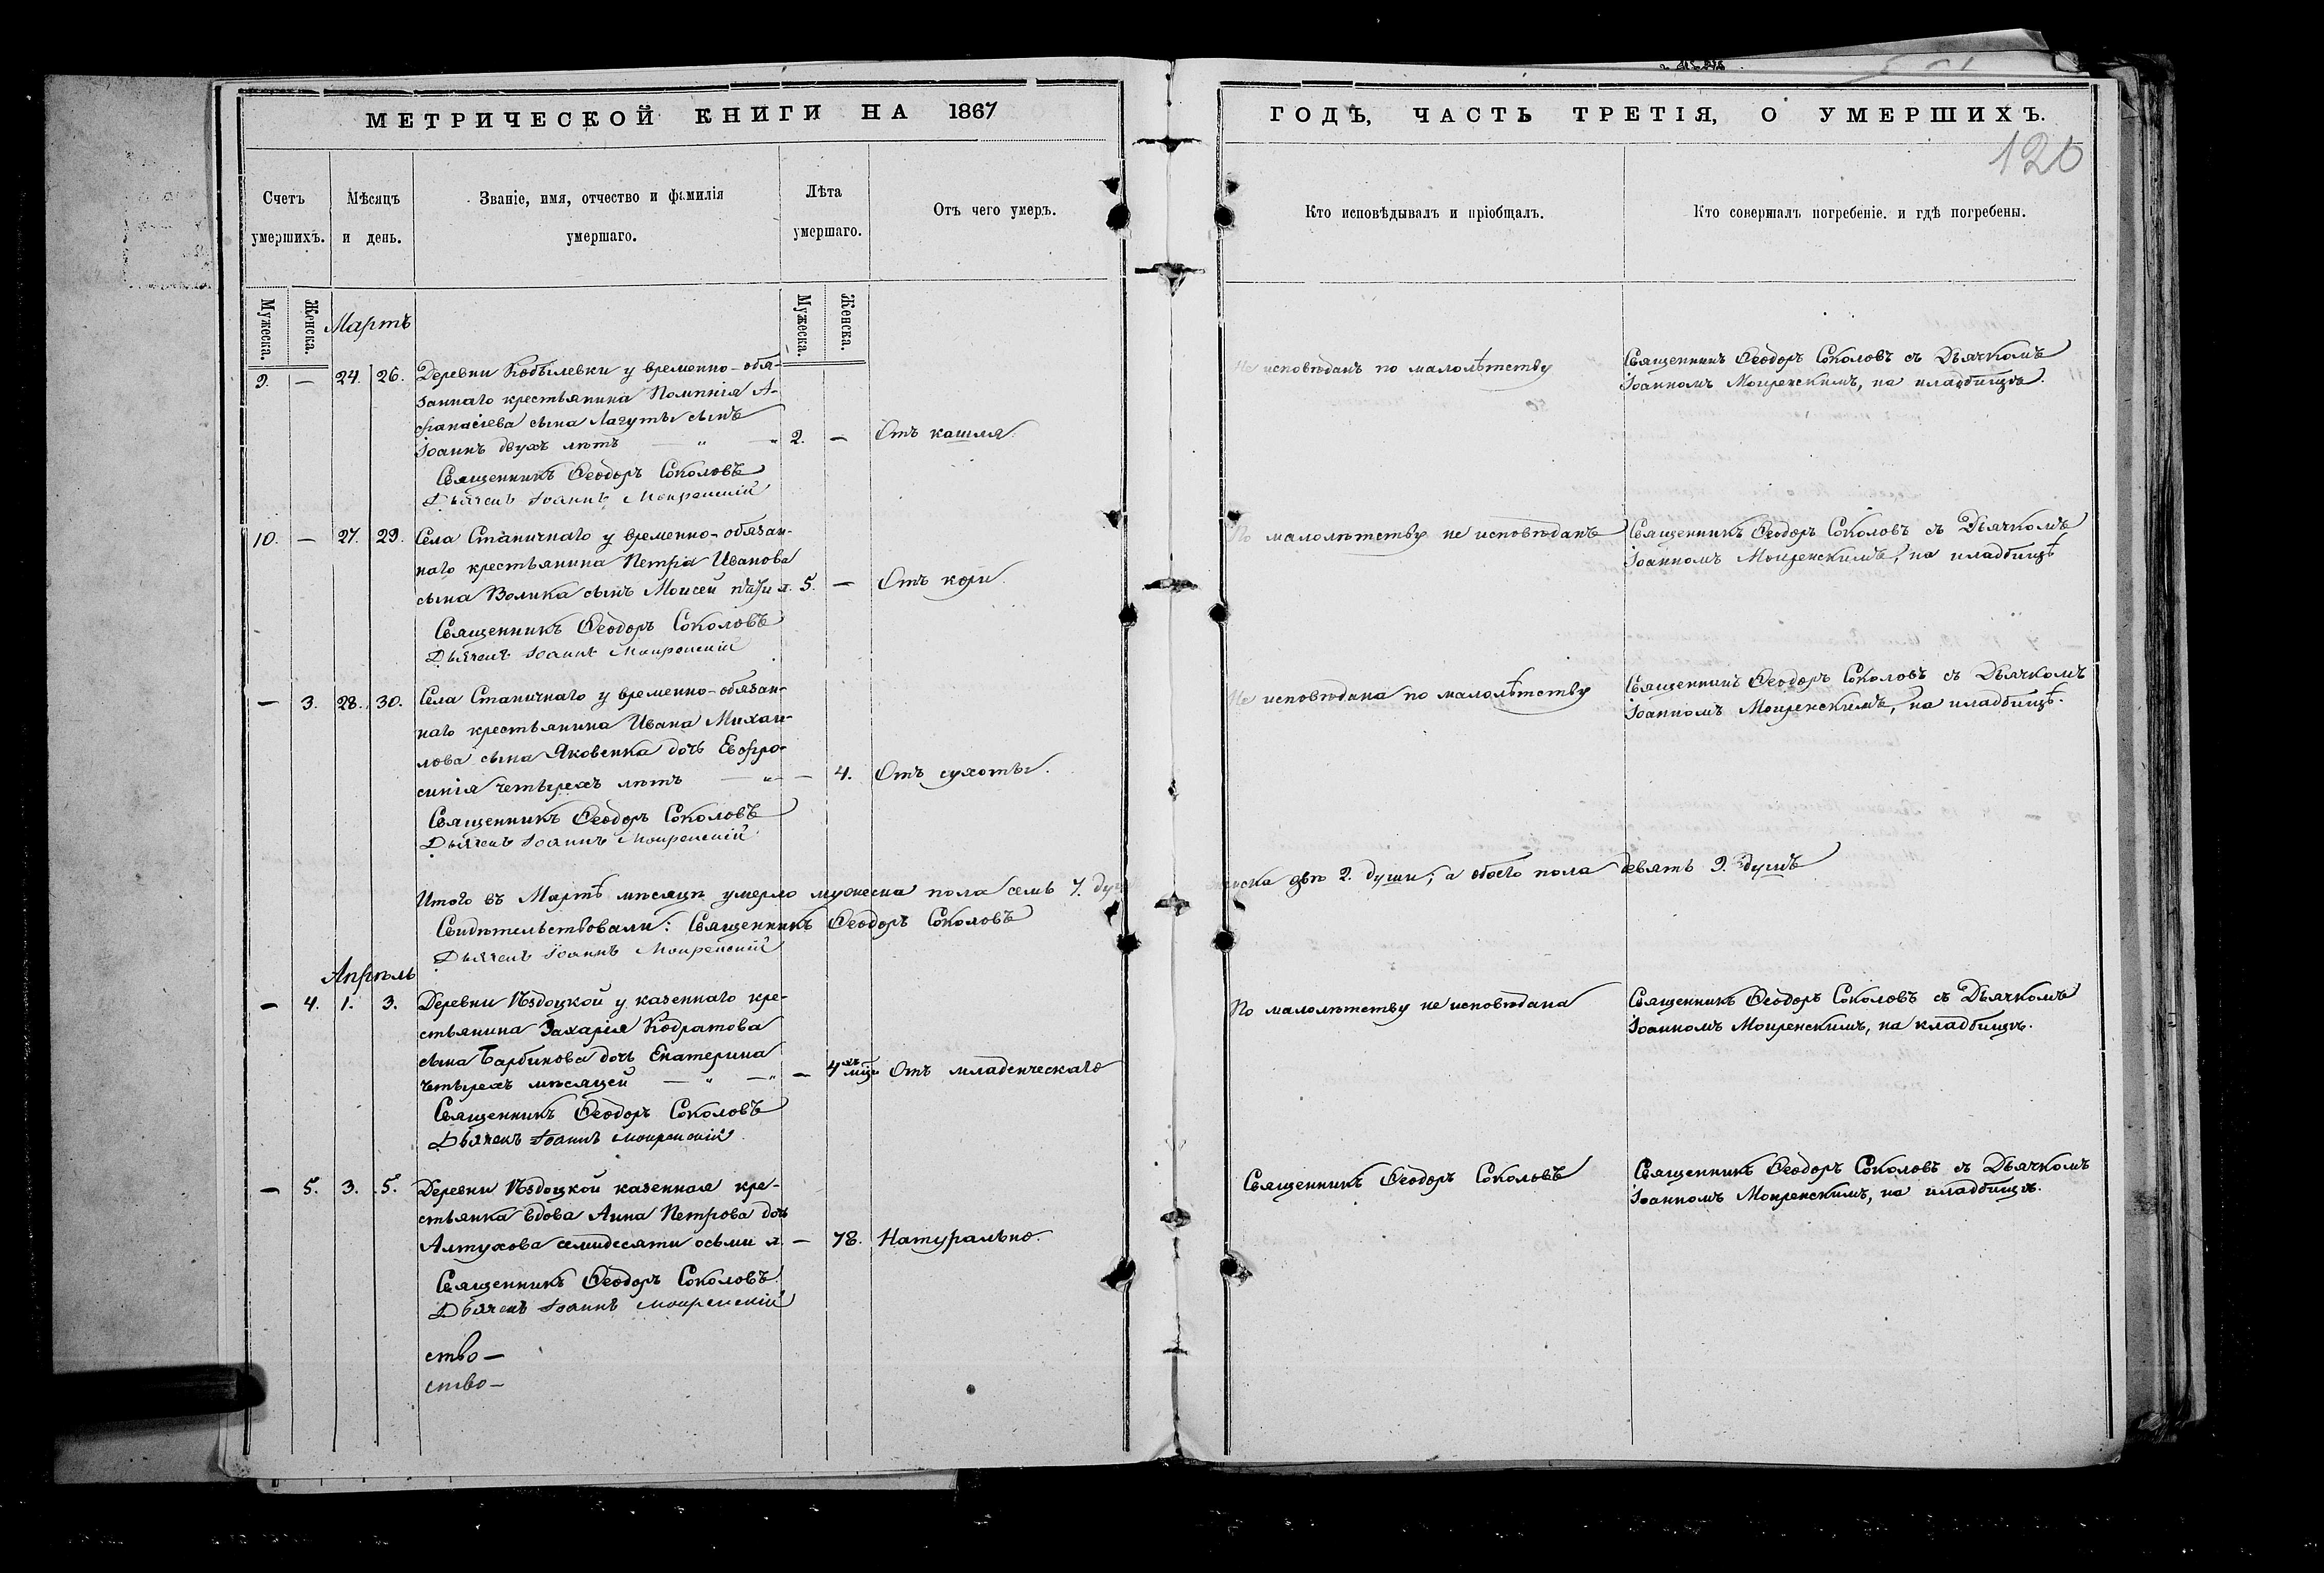 МЕТРИЧЕСКОЙ КНИГИ НА 1867
Счетъ умершихъ.
Мѣсяцъ и день.
Званіе, имя, отчество и фамилія умершаго.
Лѣта умершаго.
Отъ чего умеръ.
Мужеска.
Женска.
Мужеска.
Женска.
Мартъ
9. — 24. 26. Деревни Кобылевки у временно-обя-
заннаго крестьянина Помпнія А-
фанасіева сына Лагуты сынъ
Іоаннъ двухъ лѣтъ — „ — „ 2. — Отъ кашля.
Священникъ Ѳеодоръ Соколовъ
Дьячекъ Іоаннъ Мокренскій
10. — 27. 29. Села Станичнаго у временно-обязан-
наго крестьянина Петра Иванова
сына Волика сынъ Моисей пяти л. 5. — Отъ кори.
Священникъ Ѳеодоръ Соколовъ
Дьячекъ Іоаннъ Мокренскій
— 3. 28. 30. Села Станичнаго у временно-обязан-
наго крестьянина Ивана Михаи-
лова сына Яковенка дочь Евфро-
синія четырехъ лѣтъ — „ — — 4. Отъ сухоты.
Священникъ Ѳеодоръ Соколовъ
Дьячекъ Іоаннъ Мокренскій
Итого въ Мартѣ мѣсяцѣ умерло мужеска пола семь 7. ду
Свидѣтельствовали: Священникъ Ѳеодоръ Соколовъ
Дьячекъ Іоаннъ Мокренскій
Апрѣль
— 4. 1. 3. Деревни Ѣздоцкой у казеннаго кре-
стьянина Захарія Кодратова
сына Барбинова дочь Екатерина
четырехъ мѣсяцей — „ — „ — 4хъ мѣц. Отъ младенческаго
Священникъ Ѳеодоръ Соколовъ
Дьячекъ Іоаннъ Мокренскій.
— 5. 3. 5. Деревни Ѣздоцкой казенная кре-
стьянка вдова Анна Петрова дочь
Алтухова семидесяти осьми л. — 78. Натурально.
Священникъ Ѳеодоръ Соколовъ
Дьячекъ Іоаннъ Мокренскій
ство —
ство —
ГОДЪ, ЧАСТЬ ТРЕТІЯ, О УМЕРШИХЪ.
120
Кто исповѣдывалъ и пріобщалъ.
Кто совершалъ погребеніе. и гдѣ погребены.
Не исповѣданъ по малолѣтству
Священникъ Ѳеодоръ Соколовъ съ Дьячкомъ
Іоанномъ Мокренскимъ, на кладбищѣ.
По малолѣтству не исповѣданъ
Священникъ Ѳеодоръ Соколовъ съ Дьячкомъ
Іоанномъ Мокренскимъ, на кладбищѣ
Не исповѣдана по малолѣтству
Священникъ Ѳеодоръ Соколовъ съ Дьячкомъ
Іоанномъ Мокренскимъ, на кладбищѣ.
нска двѣ 2. души; а обоего пола девять 9. душъ
По малолѣтству не исповѣдана
Священникъ Ѳеодоръ Соколовъ съ Дьячкомъ
Іоанномъ Мокренскимъ, на кладбищѣ.
Священникъ Ѳеодоръ Соколовъ
Священникъ Ѳеодоръ Соколовъ съ Дьячкомъ
Іоанномъ Мокренскимъ, на кладбищѣ.